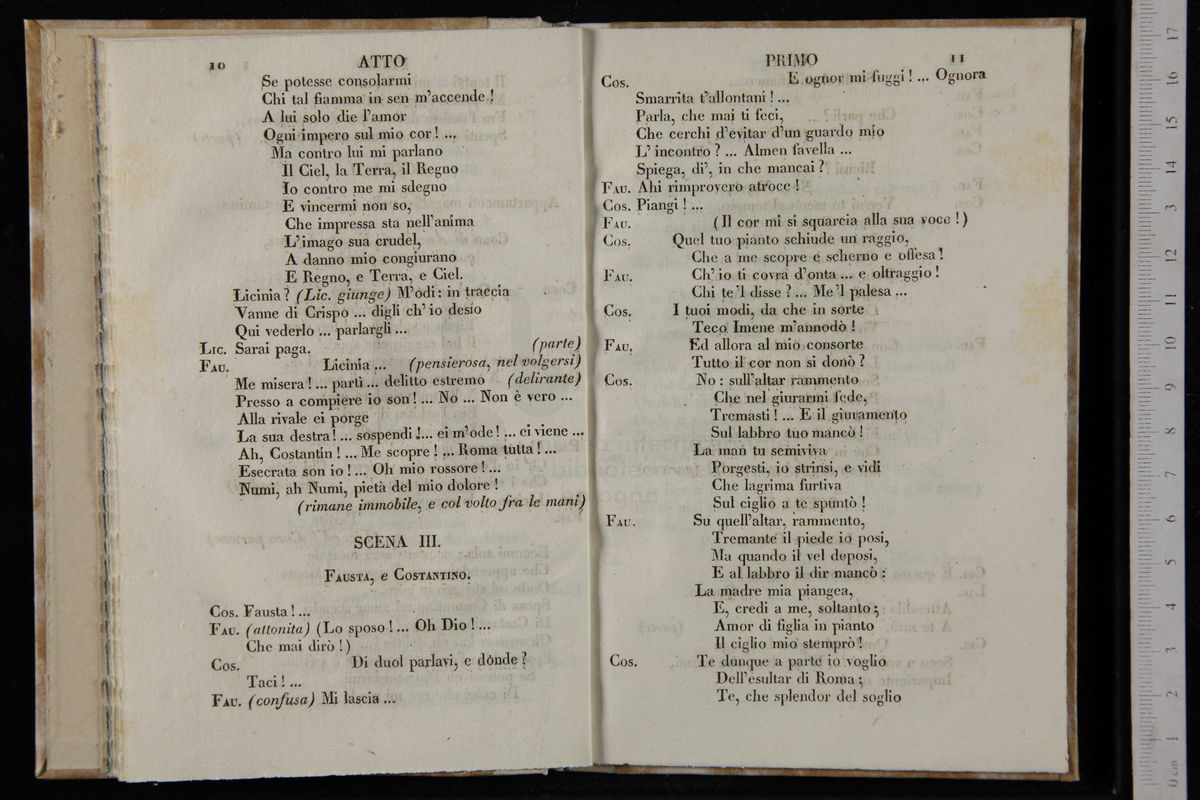 10 ATTO
Se potesse consolarmi
Chi tal fiamma in sen m'accende !
A lui solo die l'amor
Ogni impero sul mio cor ! ...
Ma contro lui mi parlano
Il Ciel, la Terra, il Regno
Io contro me mi sdegno
E vincermi non so,
Che impressa sta nell'anima
L'imago sua crudel,
A danno mio congiurano
E Regno, e Terra, e Ciel.
Licinia ? (Lic. giunge) M'odi : in traccia
Vanne di Crispo ... digli ch'io desio
Qui vederlo ... parlargli ...
LIC. Sarai paga. (parte)
FAU. Licinia ... (pensierosa, nel volgersi)
Me misera ! ... partì ... delitto estremo (delirante)
Presso a compiere io son ! ... No ... Non è vero ...
Alla rivale ei porge
La sua destra ! ... sospendi ! ... ei m'ode ! ... ei viene ...
Ah, Costantin ! ... Me scopre ! ... Roma tutta ! ...
Esecrata son io ! ... Oh mio rossore ! ...
Numi, ah Numi, pietà del mio dolore !
(rimane immobile, e col volto fra le mani)
SCENA III.
FAUSTA, e COSTANTINO.
Cos. Fausta ! ...
FAU. (attonita) (Lo sposo ! ... Oh Dio ! ...
Che mai dirò !)
Cos. Di duol parlavi, e dònde ?
Taci ! ...
FAU. (confusa) Mi lascia ...
PRIMO 11
Cos. E ognor mi fuggi ! ... Ognora
Smarrita t'allontani ! ...
Parla, che mai ti feci,
Che cerchi d'evitar d'un guardo mio
L'incontro ? ... Almen favella ...
Spiega, di', in che mancai ?
FAU. Ahi rimprovero atroce !
Cos. Piangi ! ...
FAU. (Il cor mi si squarcia alla sua voce !)
Cos. Quel tuo pianto schiude un raggio,
Che a me scopre e scherno e offesa !
FAU. Ch'io ti covra d'onta ... e oltraggio !
Chi te 'l disse ? ... Me 'l palesa ...
Cos. I tuoi modi, da che in sorte
Teco Imene m'annodò !
FAU. Ed allora al mio consorte
Tutto il cor non si donò ?
Cos. No : sull'altar rammento
Che nel giurarmi fede,
Tremasti ! ... E il giuramento
Sul labbro tuo mancò !
La man tu semiviva
Porgesti, io strinsi, e vidi
Che lagrima furtiva
Sul ciglio a te spuntò !
FAU. Su quell'altar, rammento,
Tremante il piede io posi,
Ma quando il vel deposi,
E al labbro il dir mancò :
La madre mia piangea,
E, credi a me, soltanto ;
Amor di figlia in pianto
Il ciglio mio stemprò !
Cos. Te dunque a parte io voglio
Dell'esultar di Roma ;
Te, che splendor del soglio